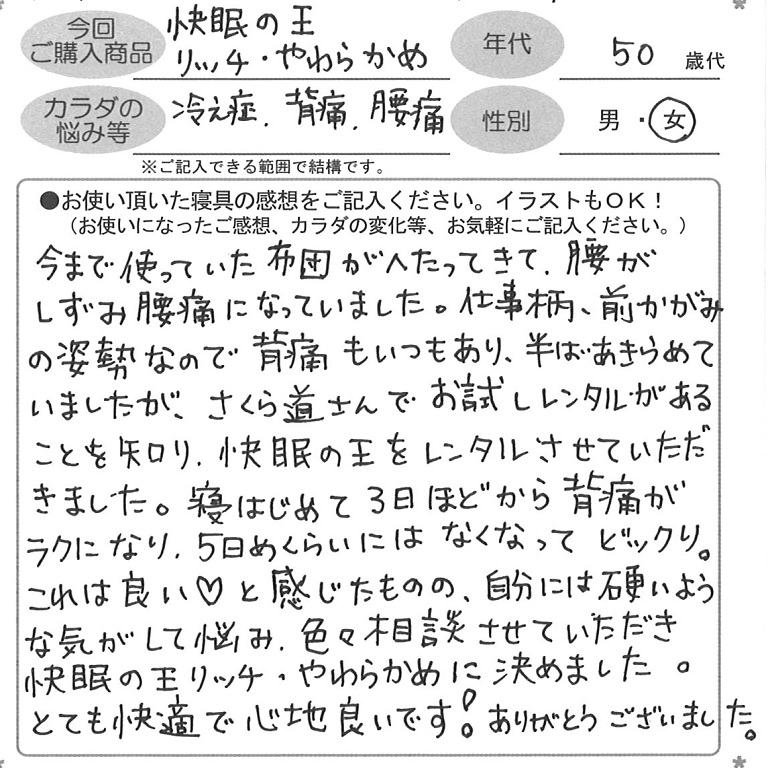 今回
ご購入商品
快眠の王
リッチ・やわらかめ
年代
50 歳代
カラダの
悩み等
冷え症、背痛、腰痛
性別
男・女
※ご記入できる範囲で結構です。
●お使い頂いた寝具の感想をご記入ください。イラストもOK!
(お使いになったご感想、カラダの変化等、お気軽にご記入ください。)
今まで使っていた布団がへたってきて、腰が
しずみ腰痛になっていました。仕事柄、前かがみ
の姿勢なので背痛もいつもあり、半ばあきらめて
いましたが、さくら道さんでお試しレンタルがある
ことを知り、快眠の王をレンタルさせていただ
きました。寝はじめて3日ほどから背痛が
ラクになり、5日めくらいにはなくなってビックリ。
これは良い♡と感じたものの、自分には硬いよう
な気がして悩み、色々相談させていただき
快眠の王リッチ・やわらかめに決めました。
とても快適で心地良いです!ありがとうございました。